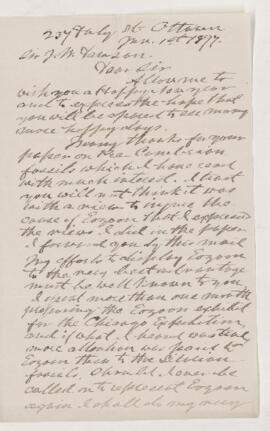 237 Daly St. Ottawa
Jan. 1st 1897.
Sir J. W. Dawson.
Dear Sir
Allow me to
wish you a Happy New year
and to express the hope that
you will be spared to see many
more happy days.
Many thanks for your
paper on Pre Cambrian
fossils which I have read
with much interest. I trust
you will not think it was
with a view to injure the
cause of Eozoon that I expressed
the views I did in the paper
I forward you by this mail
My efforts to display Eozoon
to the very best advantage
must be well known to you
I used more than one month
preparing the Eozoon exhibit
for the Chicago Exposition,
and if what I heard was true
more attention was paid to
Eozoon than to the
fossils. Should I ever be
called on to represent Eozoon
again I shall do my very